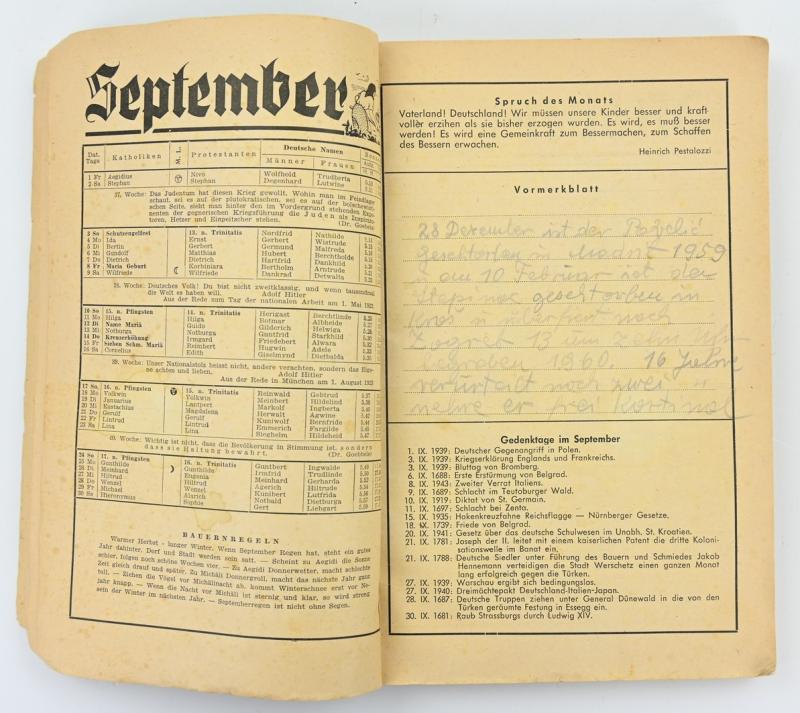 September
Dat. Tags
Katholiken
M. L.
Protestanten
Deutsche Namen
Männer
Frauen
1 Fr Aegidius Nivo Wolfhold Trudberta
2 Sa Stephan Stephan Degenhard Lutwine
37. Woche: Das Judentum hat diesen Krieg gewollt. Wohin man im Feindlager
schaut, sei es auf der plutokratischen, sei es auf der bolschewistischen
Seite, sieht man hinter den im Vordergrund stehenden Exponenten
der gegnerischen Kriegsführung die Juden als Inspiratoren,
Hetzer und Einpeitscher stehen. (Dr. Goebbels
3 So Schutzengelfest 13. n. Trinitatis Nordfrid Nathilde
4 Mo Ida Ernst Gerbert Wistrude
5 Di Bertin Herbert Germund Malfreda
6 Mi Gundolf Matthias Hubert Berchtholde
7 Do Dietrich Dietrich Hartfrid Dankhild
8 Fr Mariä Geburt Korbiniara Bertholm Arntrude
9 Sa Wilfriede Wilfriede Dankrad Detwalta
38. Woche: Deutsches Volk! Du bist nicht zweitklassig, und wenn tausendmal
die Welt es haben will. Adolf Hitler
Aus der Rede zum Tag der nationalen Arbeit am 1. Mai
10 So 15. n. Pfingsten 14. n. Trinitatis Herigast Berchtlind
11 Mo Hilga Hilga Botmar Albheide
12 Di Name Mariä Guido Gilderich Helwiga
13 Mi Notburga Notburga Gantfrid Starkhild
14 Do Kreuzerhöhung Irmgard Friedebert Alwara
15 Fr Sieben Schm. Mariä Reinbert Hugwin Adele
16 Sa Cornelius Edith Giselmynd Dietbalda
39. Woche: Unser Nationalstolz heisst nicht, andere verachten, sondern das Eigene
achten und lieben. Adolf Hitler
Aus der Rede in München am 1. August 1923
17 So 16. n. Pfingsten 15. n. Trinitatis Reinwald Gebtrud
18 Mo Volkwin Volkwin Lantpert Heidelind
19 Di Januarius Januarius Markolf Ingberta
20 Mi Eustachius Magdalena Herwalt Agwine
21 Do Gerulf Gerulf Kuniwolf Bernfriede
22 Fr Lintrud Lintrud Emmerich Fargilde
23 Sa Lina Lina Sieghelm Hildeheid
40. Woche: Wichtig ist nicht, dass die Bevölkerung in Stimmung ist, sondern
dass sie Haltung bewahrt. (Dr. Goebbels
24 So 17. n. Pfingsten 16. n. Trinitatis Guntbert Ingwalde
25 Mo Gunthilde Gunthilde Irmfrid Trudlinde
26 Di Meinhard Eugenia Meinhard Gerharda
27 Mi Hiltrud Hiltrud Agerich Hiltrude
28 Do Wenzel Wenzel Kunibert Lutfrida
29 Fr Michael Alarich Notbald Dietburga
30 Sa Hieronymus Sophie Gert Liebgart
BAUERNREGELN
Warmer Herbst - langer Winter. Wenn September Regen hat, steht ein gutes
Jahr dahinter, Dorf und Stadt werden sein satt. — Scheint zu Aegidi die Sonne
sicher, folgen noch schöne Wochen vier. — Zu Aegidi Donnerwetter, macht schlechte
Zeit gleich drauf und später. Zu Michäli Donnergroll, macht das nächste Jahr ganz
toll. — Ziehen die Vögel vor Michälinacht ab, kommt Winterschnee erst vor Neujahr
knapp. — Wenn die Nacht vor Michäli ist sternig und klar, so wird streng
sein der Winter im nächsten Jahr. — Septemberregen ist nicht ohne Segen.
Spruch des Monats
Vaterland! Deutschland! Wir müssen unsere Kinder besser und kraft-
voller erzihen als sie bisher erzogen wurden. Es wird, es muß besser
werden! Es wird eine Gemeinkraft zum Bessermachen, zum Schaffen
des Bessern erwachen.
Heinrich Pestalozzi
Vormerkblatt
28 Dezember ist der Pavelić
geschtorben in Madrit 1959
u am 10 Februar ist der
Stepinac geschtorben in
nach
Zagreb
1960. 16 Jahre
verurteilt noch zwei
er frei
Gedenktage im September
1. IX. 1939: Deutscher Gegenangriff in Polen.
3. IX. 1939: Kriegserklärung Englands und Frankreichs.
3. IX. 1939: Bluttag von Bromberg.
6. IX. 1688: Erste Erstürmung von Belgrad.
8. IX. 1943: Zweiter Verrat Italiens.
9. IX. 1689: Schlacht im Teutoburger Wald.
10. IX. 1919: Diktat von St. Germain.
11. IX. 1697: Schlacht bei Zenta.
15. IX. 1935: Hakenkreuzfahne Reichsflagge — Nürnberger Gesetze.
18. IX. 1739: Friede von Belgrad.
20. IX. 1941: Gesetz über das deutsche Schulwesen im Unabh. St. Kroatien.
21. IX. 1781: Joseph der II. leitet mit einem kaiserlichen Patent die dritte Koloni-
sationswelle im Banat ein.
21. IX. 1788: Deutsche Siedler unter Führung des Bauern und Schmiedes Jakob
Hennemann verteidigen die Stadt Werschetz einen ganzen Monat
lang erfolgreich gegen die Türken.
27. IX. 1939: Warschau ergibt sich bedingungslos.
27. IX. 1940: Dreimächtepakt Deutschland-Italien-Japan.
28. IX. 1687: Deutsche Truppen ziehen unter General Dünewald in die von den
Türken geräumte Festung in Essegg ein.
30. IX. 1681: Raub Strassburgs durch Ludwig XIV.